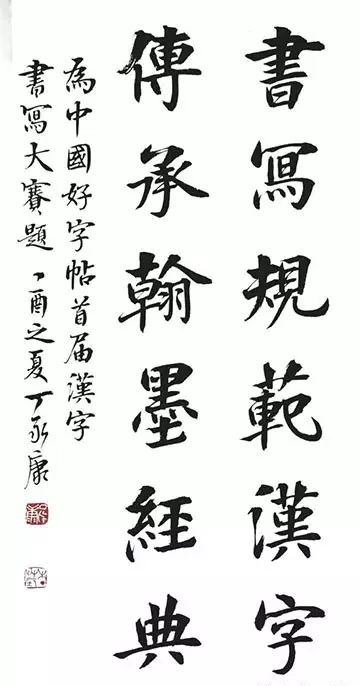 書冩規範漢字
傳承翰墨經典
為中國好字帖首届漢字
書冩大賽題丁酉之夏丁永康